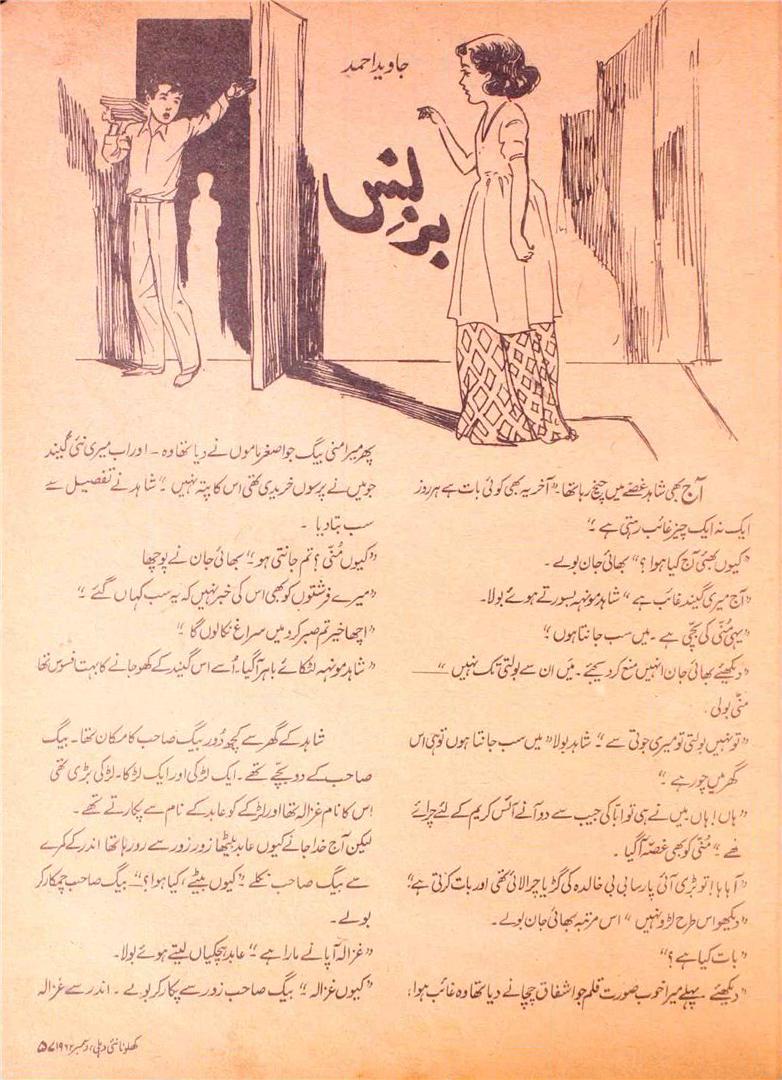 جاوید احمد
بزنِس
آج بھی شاہد غصّے میں چیخ رہا تھا۔ "آخر یہ بھی کوئی بات ہے ہر روز
ایک نہ ایک چیز غائب رہتی ہے۔"
"کیوں بھئی آج کیا ہوا؟" بھائی جان بولے۔
"آج میری گیند غائب ہے" شاہد مونہہ بسورتے ہوئے بولا۔
"یہی مُنّی کی بچّی ہے۔ میں سب جانتا ہوں۔"
"دیکھئے بھائی جان انہیں منع کر دیجئے۔ میں ان سے بولتی تک نہیں"
منّی بولی۔
"تو نہیں بولتی تو میری جوتی سے۔" شاہد بولا "میں سب جانتا ہوں تو ہی اس
گھر میں چور ہے۔"
"ہاں! ہاں میں نے ہی تو ابّا کی جیب سے دو آنے آئس کریم کے لئے چرائے
تھے۔" مُنّی کو بھی غصّہ آ گیا۔
"آہاہا! تو بڑی آئی پارسا بی بی خالدہ کی گڑیا چرا لائی تھی اور بات کرتی ہے"
"دیکھو اس طرح لڑو نہیں" اس مرتبہ بھائی جان بولے۔
"بات کیا ہے؟"
"دیکھئے پہلے میرا خوب صورت قلم جو اشفاق چچا نے دیا تھا وہ غائب ہوا،
پھر میرا منی بیگ جو اصغر ماموں نے دیا تھا وہ۔ اور اب میری نئی گیند
جو میں نے پرسوں خریدی تھی اس کا پتہ نہیں۔" شاہد نے تفصیل سے
سب بتا دیا۔
"کیوں مُنّی؟ تم جانتی ہو۔" بھائی جان نے پوچھا
"میرے فرشتوں کو بھی اس کی خبر نہیں کہ یہ سب کہاں گئے۔"
"اچھا خیر تم صبر کرو میں سراغ نکالوں گا۔"
"شاہد مونہہ لٹکائے باہر آگیا۔ اُسے اس گیند کے کھو جانے کا بہت افسوس تھا
شاہد کے گھر سے کچھ دُور بیگ صاحب کا مکان تھا۔ بیگ
صاحب کے دو بچّے تھے۔ ایک لڑکی اور ایک لڑکا۔ لڑکی بڑی تھی
اِس کا نام غزالہ تھا اور لڑکے کو عابد کے نام سے پکارتے تھے۔
لیکن آج خدا جانے کیوں عابد بیٹھا زور زور سے رو رہا تھا اندر کے کمرے
سے بیگ صاحب نکلے۔ "کیوں بیٹے، کیا ہوا؟" بیگ صاحب چمکار کر
بولے۔
"غزالہ آپا نے مارا ہے۔" عابد ہچکیاں لیتے ہوئے بولا۔
"کیوں غزالہ۔" بیگ صاحب زور سے پکار کر بولے۔ اندر سے غزالہ
کھلونا نئی دہلی، دسمبر ۱۹۶۲ ۵۷